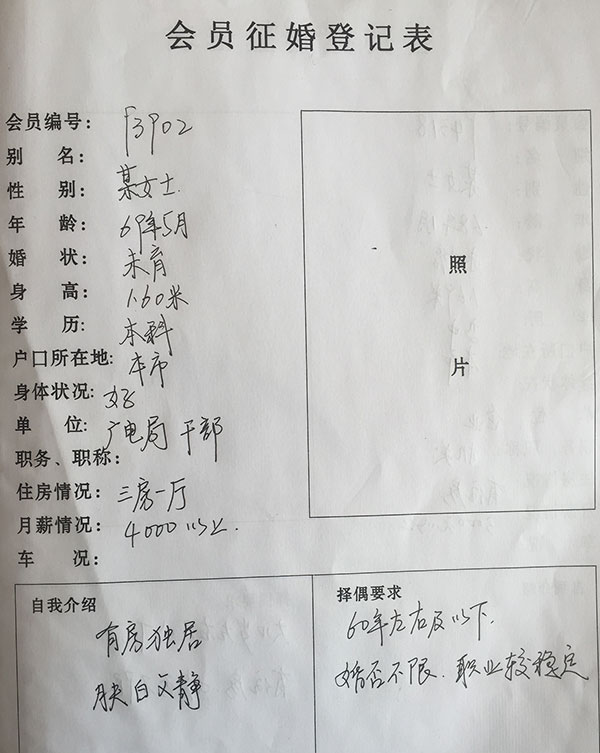 会员征婚登记表
会员编号: F3902
别 名: 某女士.
性 别:
年 龄: 69年5月
婚 状: 未育
身 高: 1.60米
学 历: 本科
户口所在地: 本市
身体状况: 好
单 位: 广电局 干部
职务、职称:
住房情况: 三房一厅
月薪情况: 4000以上.
车 况:
照
片
自我介绍
有房独居
肤白文静
择偶要求
60年左右及以下.
婚否不限. 职业较稳定